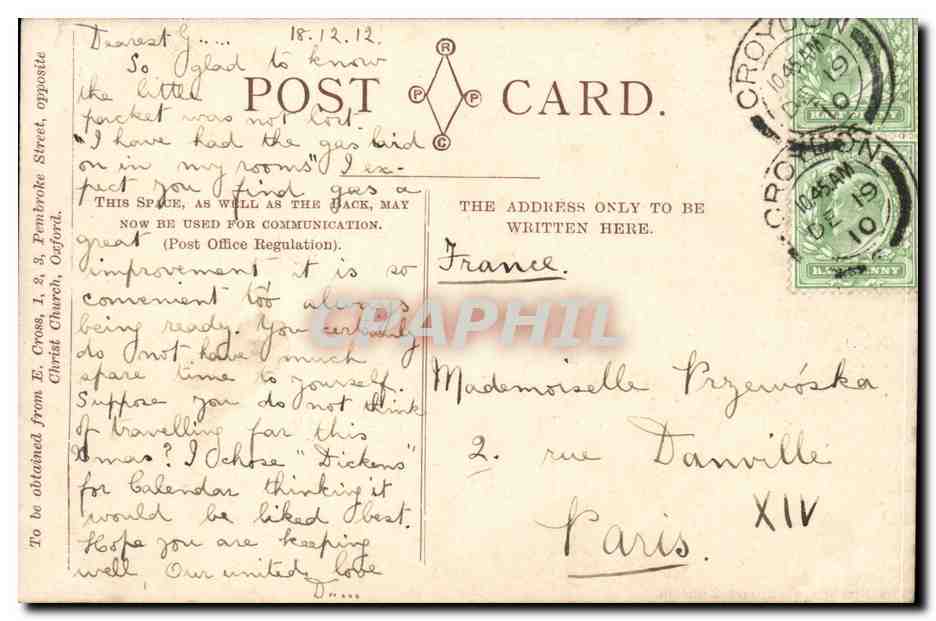 Dearest G..... 18.12.12.
So glad to know
the little
packet was not lost
"I have had the gas laid
on in my rooms" I ex-
pect you find gas a
great
improvement it is so
convenient too always
being ready. You certainly
do not have much
spare time to yourself.
Suppose you do not think
of travelling far this
Xmas? I chose "Dickens"
for Calendar thinking it
would be liked best.
Hope you are keeping
well, Our united love
D.....
POST CARD.
R
P P
C
THIS SPACE, AS WELL AS THE BACK, MAY
NOW BE USED FOR COMMUNICATION.
(Post Office Regulation).
THE ADDRESS ONLY TO BE
WRITTEN HERE.
France.
Mademoiselle Przewóska
2. rue Danville
Paris. XIV
To be obtained from E. Cross, 1, 2, 3, Pembroke Street, opposite
Christ Church, Oxford.
CROYDON
10.45 AM
DE 19
10
HALFPENNY
CROYDON
10.45 AM
DE 19
10
HALFPENNY
CPAPHIL